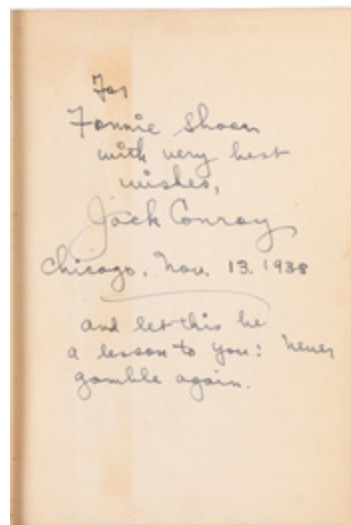 For
Fannie Shoen
with very best
wishes,
Jack Conroy
Chicago, Nov. 13, 1938
and let this be
a lesson to you: Never
gamble again.